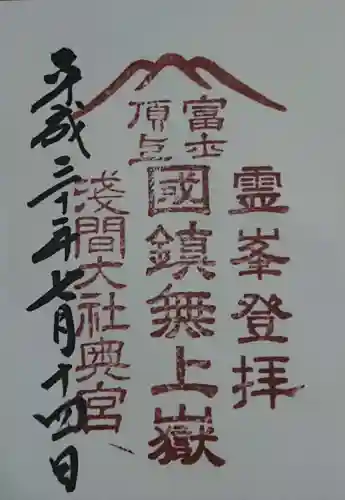 霊峯登拝
富士
頂上
國鎮無上嶽
浅間大社奥宮
平成三十年七月十四日